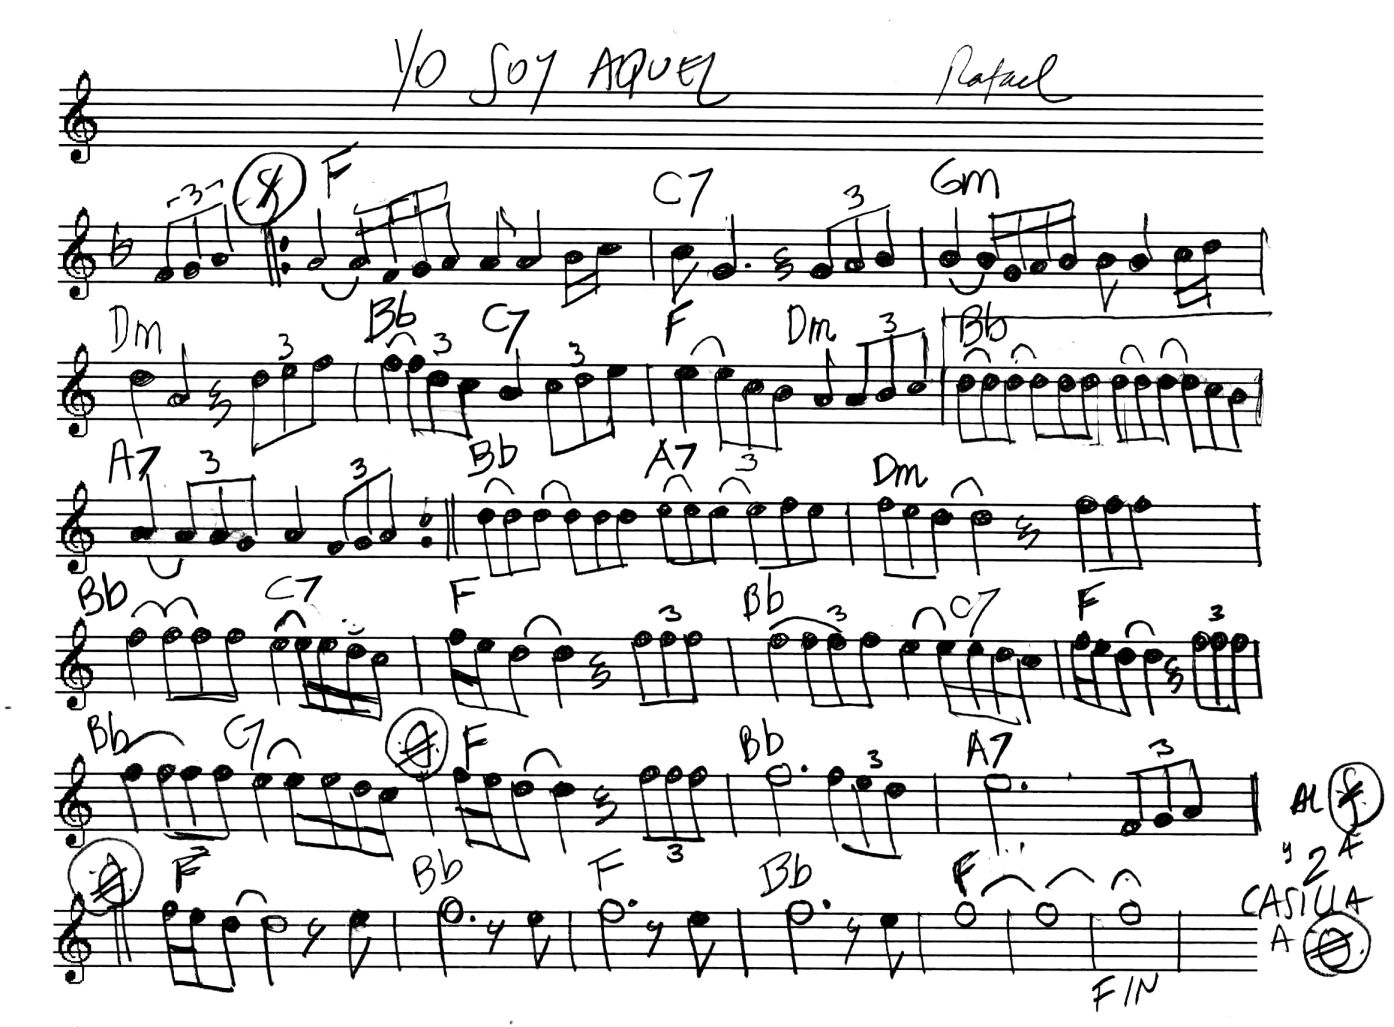 YO SOY AQUEL Rafael
3 F C7 3 Gm
Dm 3 Bb 3 C7 3 F Dm 3 Bb
A7 3 3 Bb A7 3 Dm
Bb C7 F 3 Bb 3 C7 F 3
Bb C7 F 3 Bb 3 A7 3 AL
y 2ª
F Bb F Bb F CASILLA
A
FIN